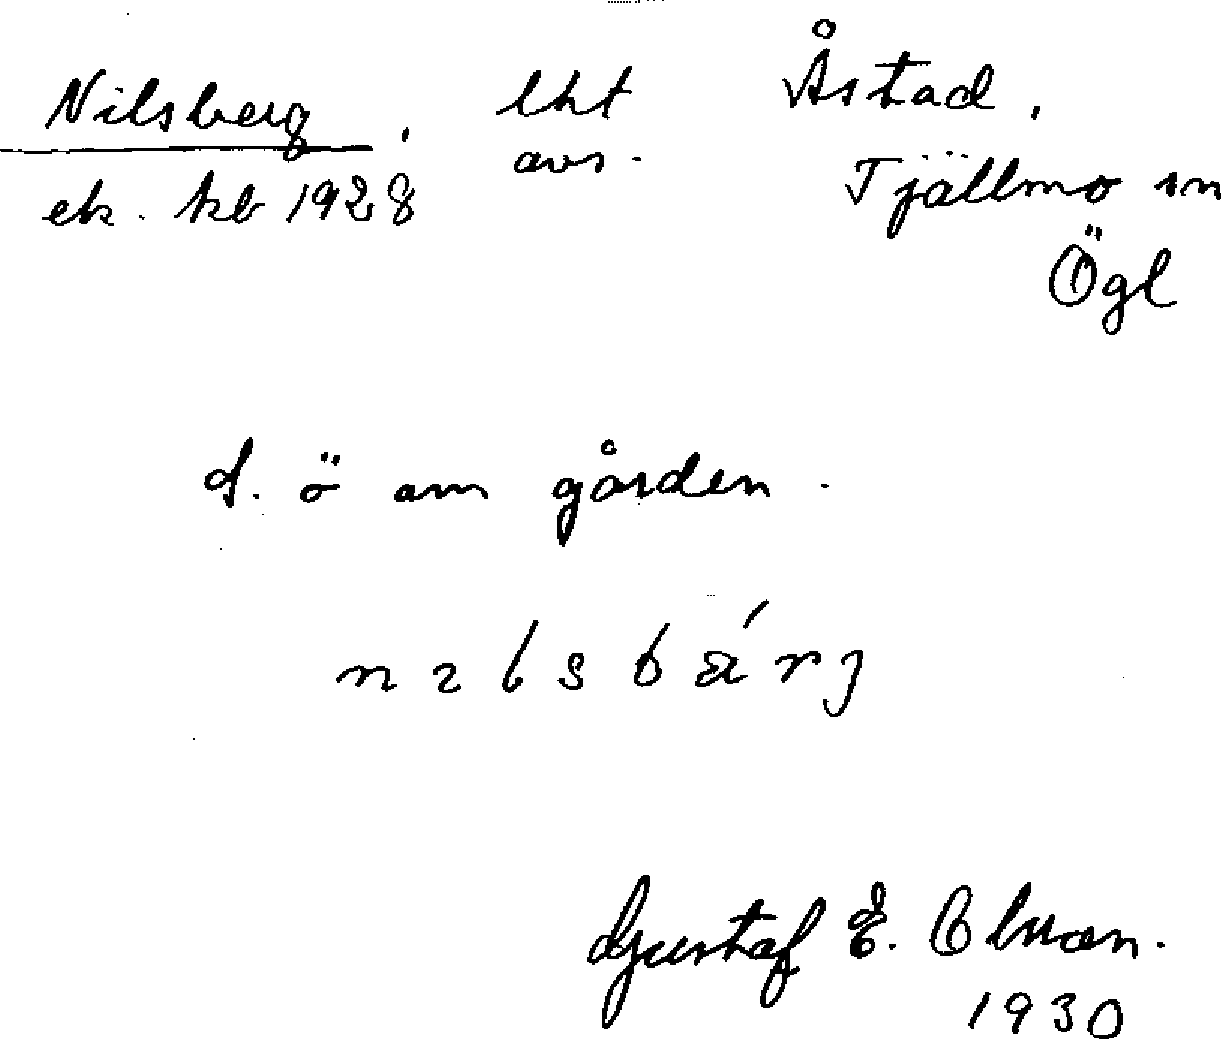 Nilsberg, lht Åstad,
ek. kb 1928 avs. Tjällmo sn
Ögl
d. ö om gården.
nɩlsbærj
Gustaf E.
1930